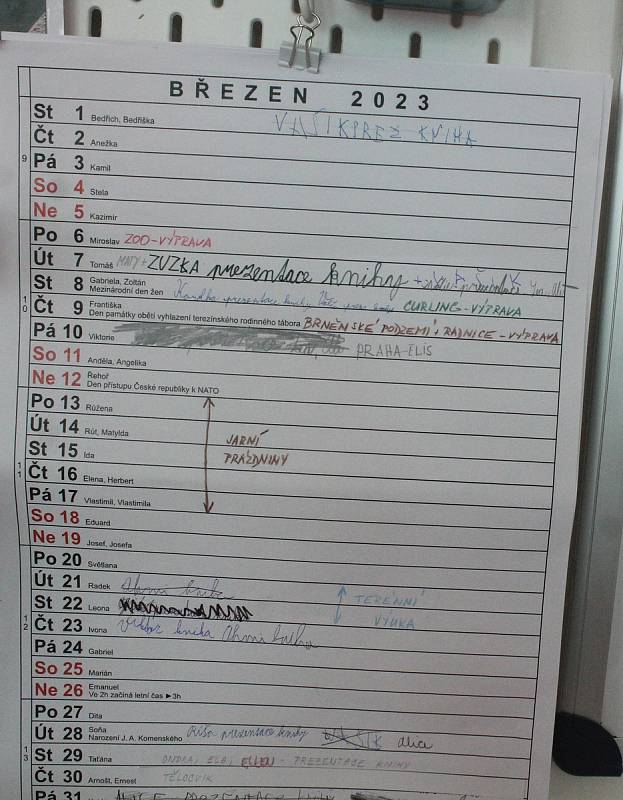 BŘEZEN 2023
St 1 Bedřich, Bedřiška VAŠÍK PREZ KNIHA
Čt 2 Anežka
9 Pá 3 Kamil
So 4 Stela
Ne 5 Kazimír
Po 6 Miroslav ZOO-VÝPRAVA
Út 7 Tomáš MATY + ZUZKA prezentace knihy
St 8 Gabriela, Zoltán
Mezinárodní den žen prezentace knihy CURLING-VÝPRAVA
10 Čt 9 Františka
Den památky obětí vyhlazení terezínského rodinného tábora BRNĚNSKÉ PODZEMÍ + RADNICE - VÝPRAVA
Pá 10 Viktorie PRAHA-ELIS
So 11 Anděla, Angelika
Ne 12 Řehoř
Den přístupu České republiky k NATO
Po 13 Růžena
Út 14 Rút, Matylda JARNÍ
St 15 Ida PRÁZDNINY
11 Čt 16 Elena, Herbert
Pá 17 Vlastimil, Vlastimila
So 18 Eduard
Ne 19 Josef, Josefa
Po 20 Světlana
Út 21 Radek kniha TERÉNNÍ
St 22 Leona VÝUKA
12 Čt 23 Ivona kniha kniha
Pá 24 Gabriel
So 25 Marián
Ne 26 Emanuel
Ve 2h začíná letní čas ►3h
Po 27 Dita
Út 28 Soňa
Narození J. A. Komenského prezentace knihy VAŠÍK alice
13 St 29 Taťána ONDRA, ELA, ELLEN - PREZENTACE KNIHY
Čt 30 Arnošt, Ernest TĚLOCVIK
Pá 31 ALICE PREZENTACE